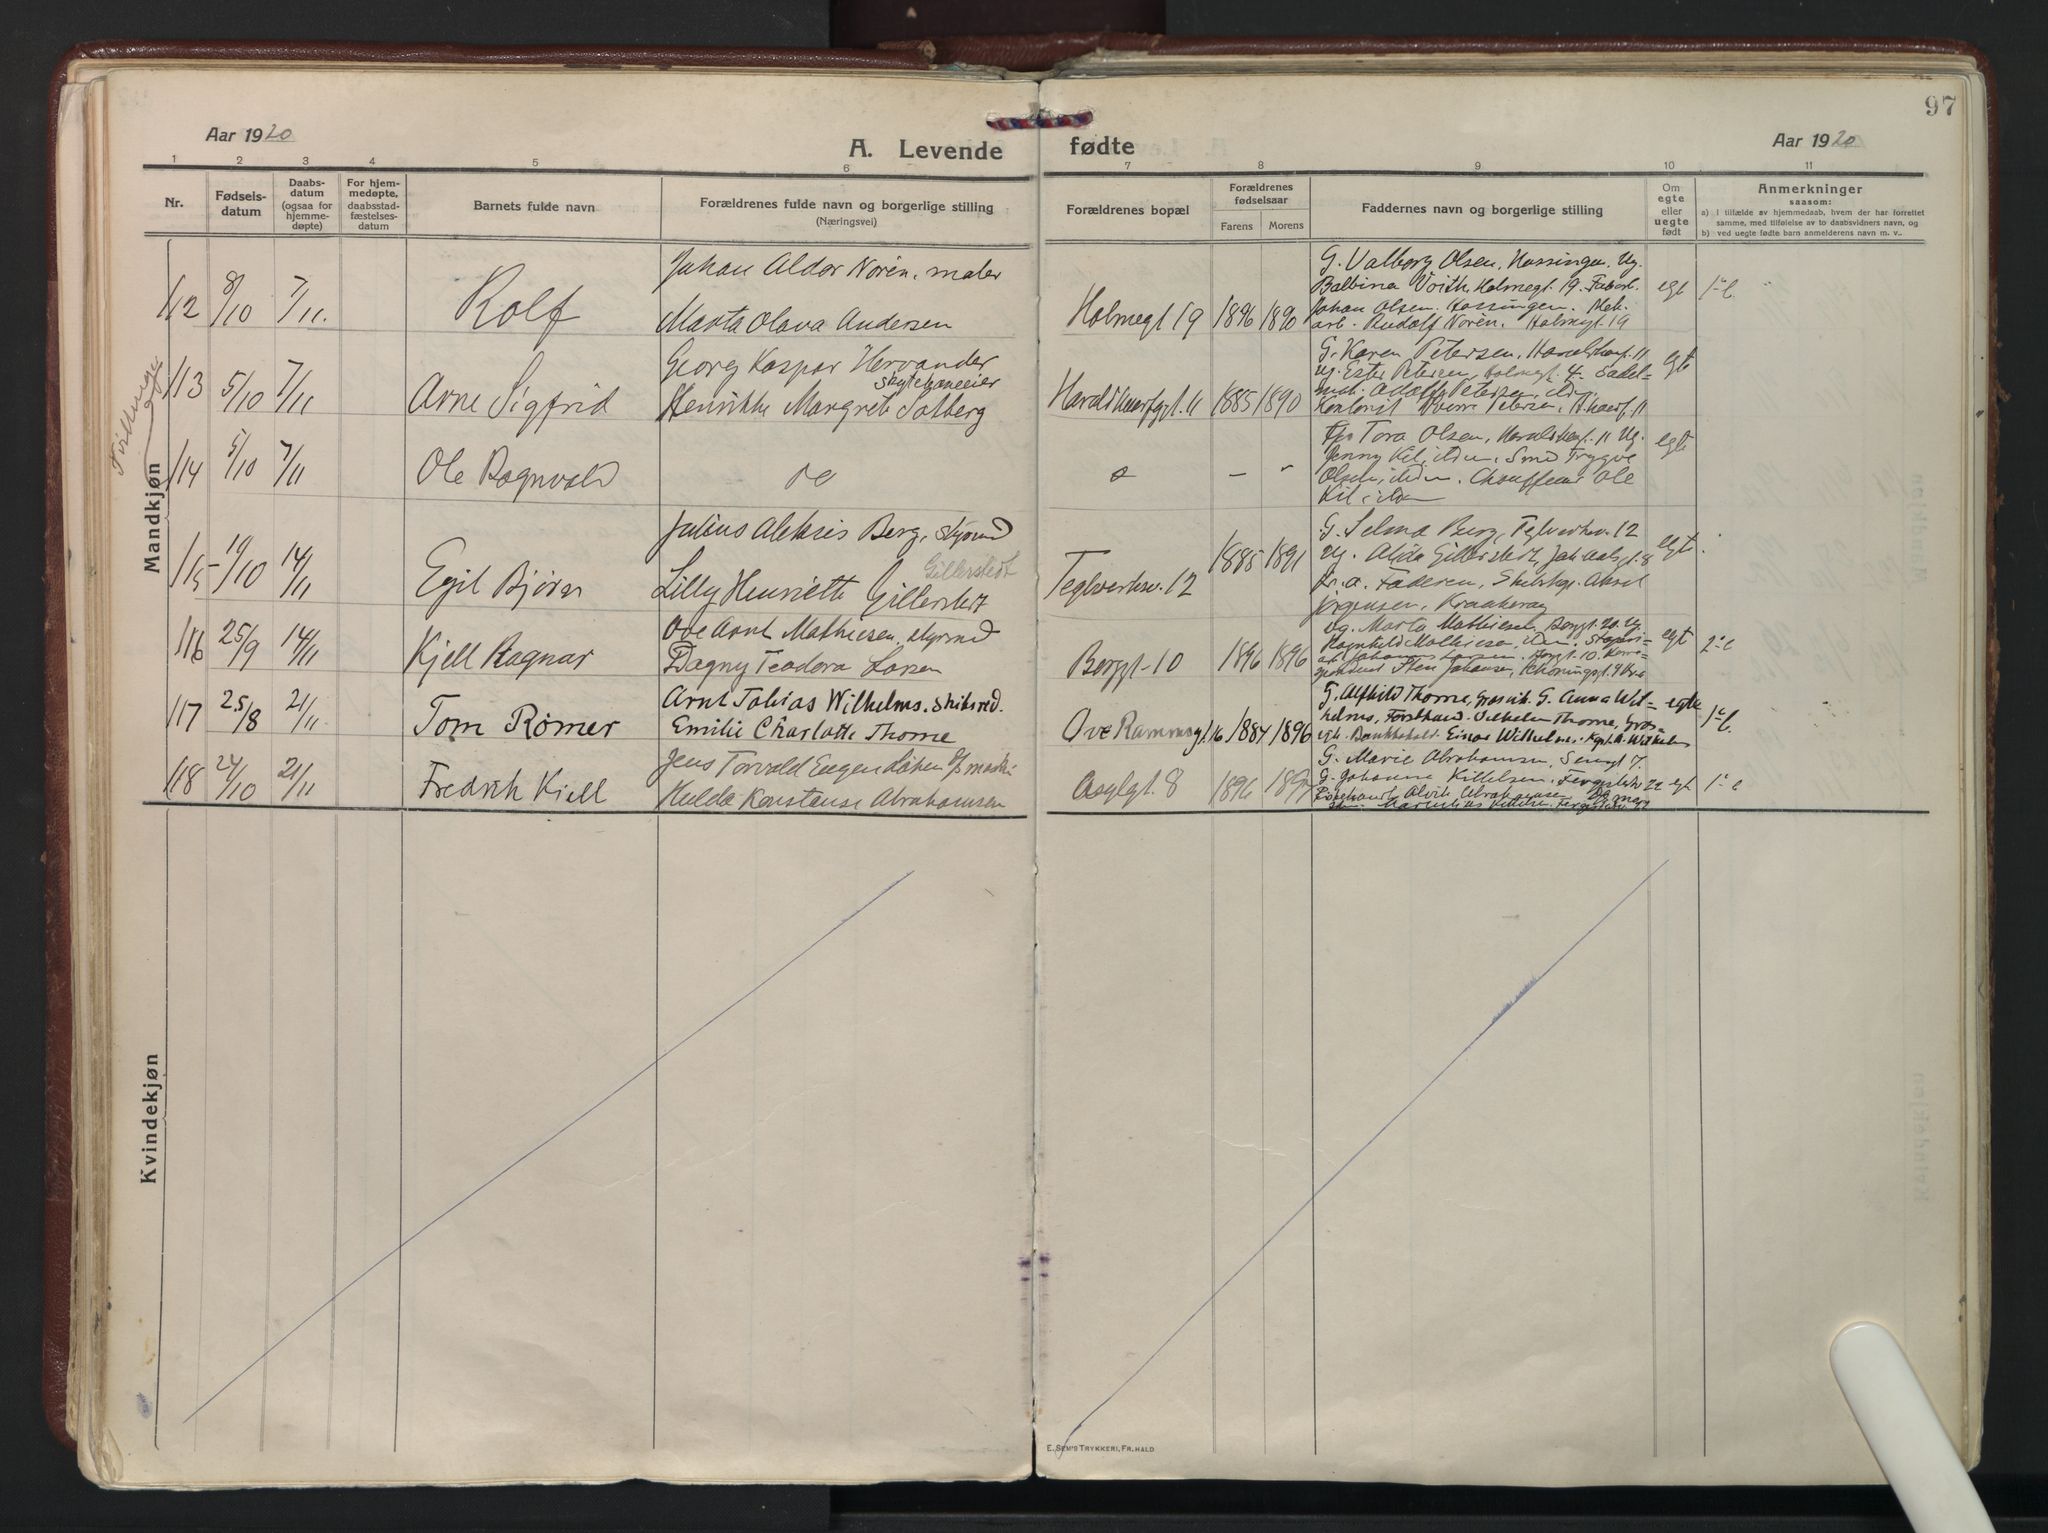 97
Aar 1920
A. Levende fødte
Aar 1920
1 2 3 4 5 6 7 8 9 10 11
Nr.
Fødsels-
datum
Daabs-
datum
(ogsaa for
hjemme-
døpte)
For hjem-
medøpte,
daabsstad-
fæstelses-
datum
Barnets fulde navn
Forældrenes fulde navn og borgerlige stilling
(Næringsvei)
Forældrenes bopæl
Forældrenes
fødselsaar
Farens Morens
Faddernes navn og borgerlige stilling
Om
egte
eller
uegte
født
Anmerkninger
saasom:
a) I tilfælde av hjemmedaab, hvem der har forrettet
samme, med tilføielse av to daabsvidners navn, og
b) ved uegte fødte barn anmelderens navn m. v..
Mandkjøn
112 8/10 7/11. Rolf
Johan Aldor Norén, maler
Marta Olava Andersen
Holmegt 19 1896 1890
G. Valborg Olsen, Hassingen, Ug.
Balbina Voith Holmegt. 19. Fabarb.
Johan Olsen. Hassingen. Mek.
arb. Rudolf Norén. Holmegt. 19
egt
113 5/10 7/11 Arne Sigfrid
Georg Kaspar Hervander
skytebaneeier
Henrikke Margrete Solberg
Haraldhaarfgt. 11 1885 1890
G. Karen Petersen, Haraldhaarf. 11
Ug. Ester Petersen, Holmegt. 4. Sadel-
mak. Adolf Petersen,
Kontorist Petersen, H. haarf. 11
egt
114 5/10 7/11 Ole Ragnvald
do
Tora Olsen, Haraldhaarf. 11 Ug.
Jenny Kil, ildem. Smed Trygve
Olsen, ildem. Chauffeur Ole
Kil, ildem
egte
115 19/10 14/11 Egil Bjørn
Julius Aleksis Berg, styrmd
Gillerstedt
Lilly Henriette Gillerstedt
Teglverksv. 12 1885 1891
G. Selma Berg, Teglverksv. 12
Ug. Alida Gillerstedt, Jak. Aalsgt. 8
Faderen, Skibskpt. Aksel
Jørgensen, Kraakerøy
egt.
116 25/9 14/11 Kjell Ragnar
Ove Arnt Mathiesen, styrmd
Dagny Teodora Larsen
Berggt. 10 1896 1896
Ug. Marta Mathiesen Berggt. 20. Ug
Ragnhild Mathiesen, ildem. Stenri-
arb. Johannes Larsen. Berggt. 10. Korre-
spondent Sten Johansen,
egt
117 25/8 21/11 Tom Rømer
Arnt Tobias Wilhelms. Skibsred.
Emilie Charlotte Thorne
Ove Rammsgt. 16 1884 1896
G. Alfhild Thorne, Græsvik. G. Anna Wil-
helms, Forsthaud. Vilhelm Thorne, Græs-
vik. Bankbokh. Einar Wilhelms. Kpt. A. Wilhelms
egte
118 24/10 21/11 Fredrik Kjell
Jens Torvald Eugen Løken
Hilda Konstanse Abrahamsen
Asylgt. 8 1896
G. Marie Abrahamsen, Sengt 7.
G. Johanne Killelsen, Fergestedsv. 22
Alvik Abrahamsen
egt
Kvindekjøn
E. SEM'S TRYKKERI, FR. HALD